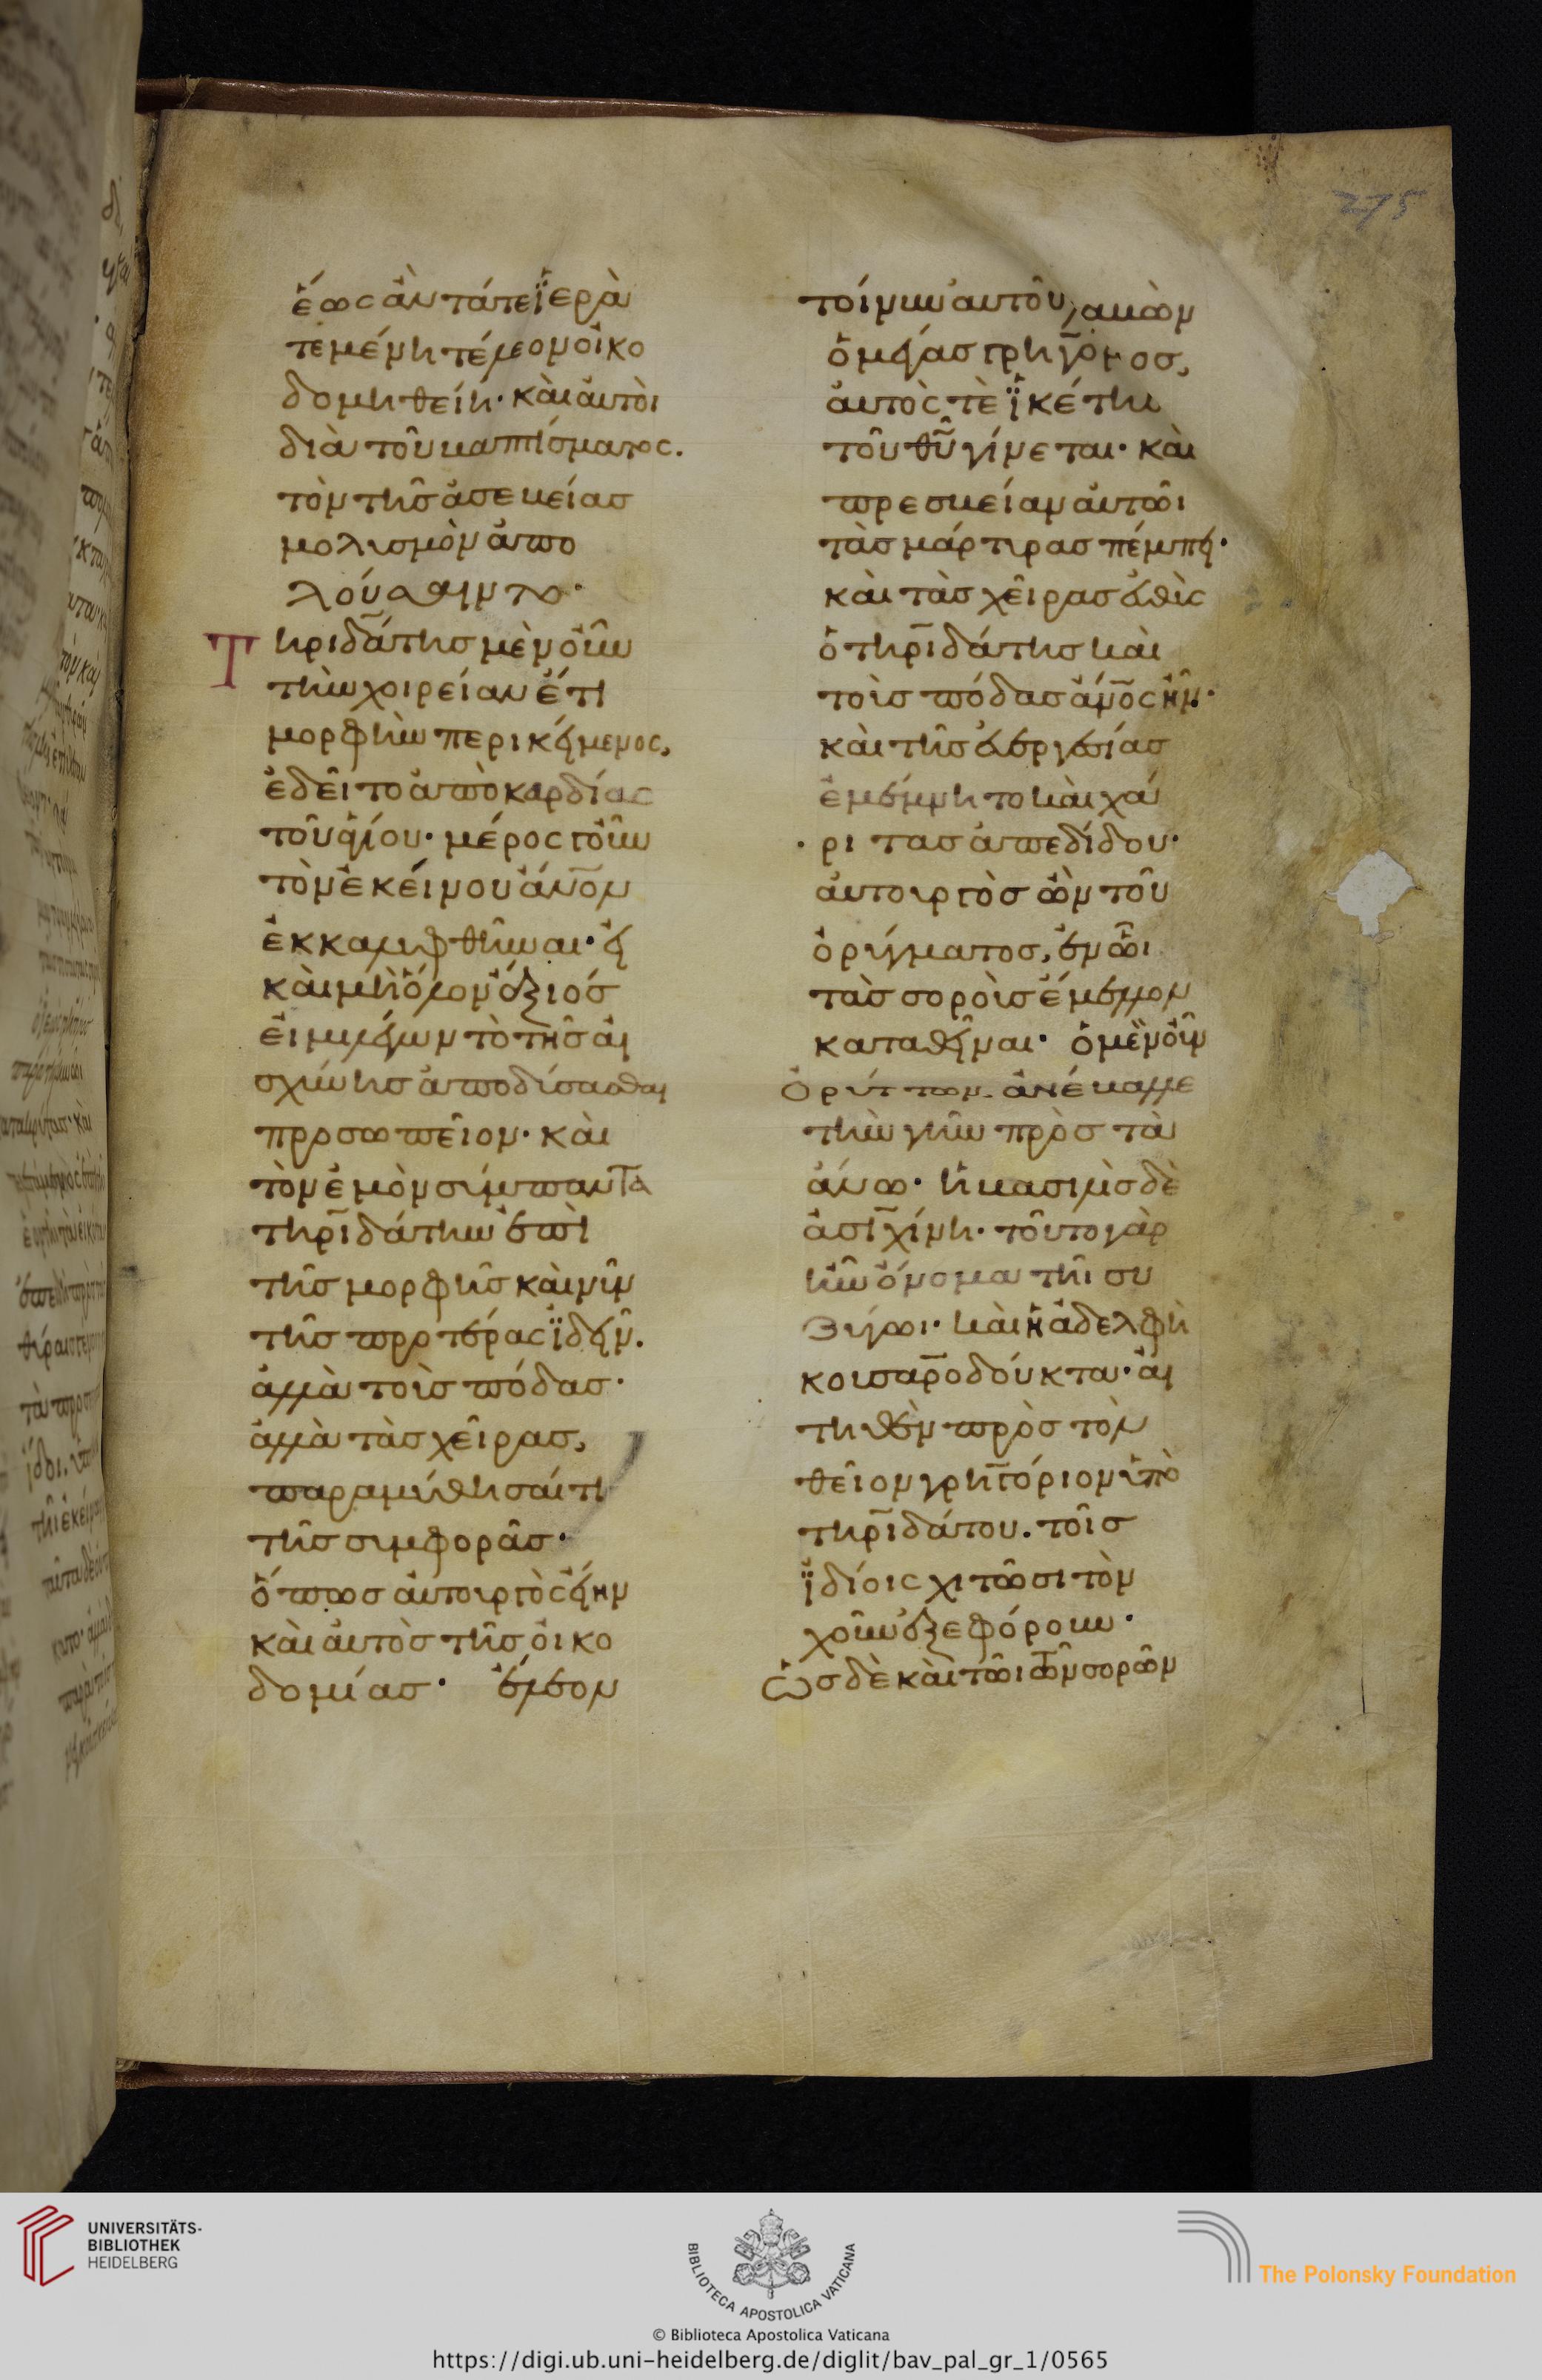 275
ἕως ἂν τά τε ϊερὰ
τεμένη τέλεον οἰκο
δομηθείη· καὶ αὐτοὶ
διὰ τοῦ βαπτίσματος.
τὸν τῆς ἀσεβείας
μολυσμὸν ἀπο
λούσαιντο·
Τηριδάτης μὲν οὖν
τὴν χοιρείαν ἔτι
μορφὴν περικείμενος,
ἐδεῖτο ἀπὸ καρδίας
τοῦ ἁγίου· μέρος γοῦν
τὸν ἐκείνου ἄνον
ἐκκαμφθῆναι· εἰ
καὶ μὴ ὅλον ἄξιός
εἰμι λέγων τὸ τῆς αἰ
σχύνης ἀποδύσασθαι
προσωπεῖον· καὶ
τὸν ἐμὸν σύμπαντα
τηριδάτην ἐπὶ
τῆς μορφῆς καὶ νῦν
τῆς προτέρας ϊδεῖν.
ἀλλὰ τοὺς πόδας·
ἀλλὰ τὰς χεῖρας,
παραμύθησαί τι
τῆς συμφορᾶς·
ὅπως αὐτουργὸς εἴην
καὶ αὐτὸς τῆς οἰκο
δομίας· ἔλεον
τοίνυν αὐτοῦ λαβὼν
ὁ μέγας γρηγόριος,
αὐτός τε ϊκέτης
τοῦ θυ γίνεται· καὶ
πρεσβείαν αὐτῶι
τὰς μάρτυρας πέμπει·
καὶ τὰς χεῖρας εὐθὺς
ὁ τηριδάτης καὶ
τοὺς πόδας ἄνος ἦν·
καὶ τῆς εὐεργεσίας
ἐμέμνητο καὶ χά
ριτας ἀπεδίδου·
αὐτουργὸς ὢν τοῦ
ὀρύγματος, ἐν ὧι
τὰς σοροὺς ἔμελλον
καταθεῖναι· ὁ μὲν οὖν
ὀρύττων. ἀνέβαλλε
τὴν γῆν πρὸς τὰ
ἄνω· ἡ βασιλὶς δὲ
ἀσιχύνη· τοῦτο γὰρ
ἦν ὄνομα τῆι συ
ζύγωι· καὶ ἡ ἀδελφὴ
κουσαροδούκτα· αἰ
τηθὲν πρὸς τὸν
θεῖον γρηγόριον ὑπὸ
τηριδάτου. τοῖς
ϊδίοις χιτῶσι τὸν
χοῦν ἐξεφόρουν·
ὡς δὲ καὶ τῶι τῶν σορῶν
UNIVERSITÄTS-
BIBLIOTHEK
HEIDELBERG
BIBLIOTECA APOSTOLICA VATICANA
The Polonsky Foundation
© Biblioteca Apostolica Vaticana
https://digi.ub.uni-heidelberg.de/diglit/bav_pal_gr_1/0565